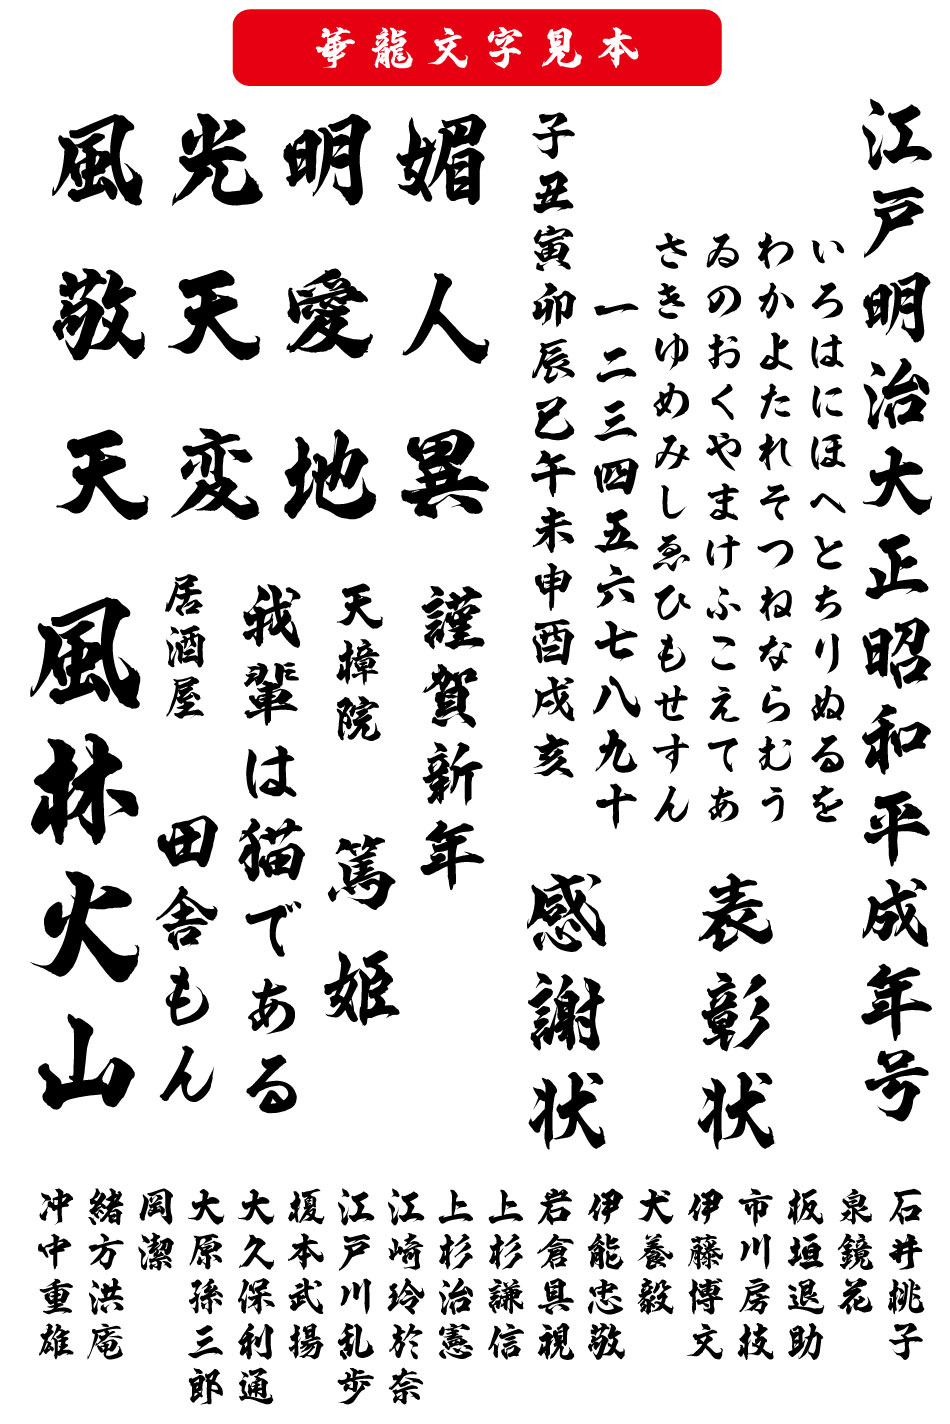 華龍文字見本
江戸明治大正昭和平成年号
いろはにほへとちりぬるを
わかよたれそつねならむう
ゐのおくやまけふこえてあ
さきゆめみしゑひもせすん
一二三四五六七八九十
子丑寅卯辰巳午未申酉戌亥
表彰状
感謝状
風光明媚
敬天愛人
天変地異
謹賀新年
天璋院 篤姫
我輩は猫である
居酒屋 田舎もん
風林火山
石井桃子
泉鏡花
板垣退助
市川房枝
伊藤博文
犬養毅
伊能忠敬
岩倉具視
上杉謙信
上杉治憲
江崎玲於奈
江戸川乱歩
榎本武揚
大久保利通
大原孫三郎
岡潔
緒方洪庵
冲中重雄